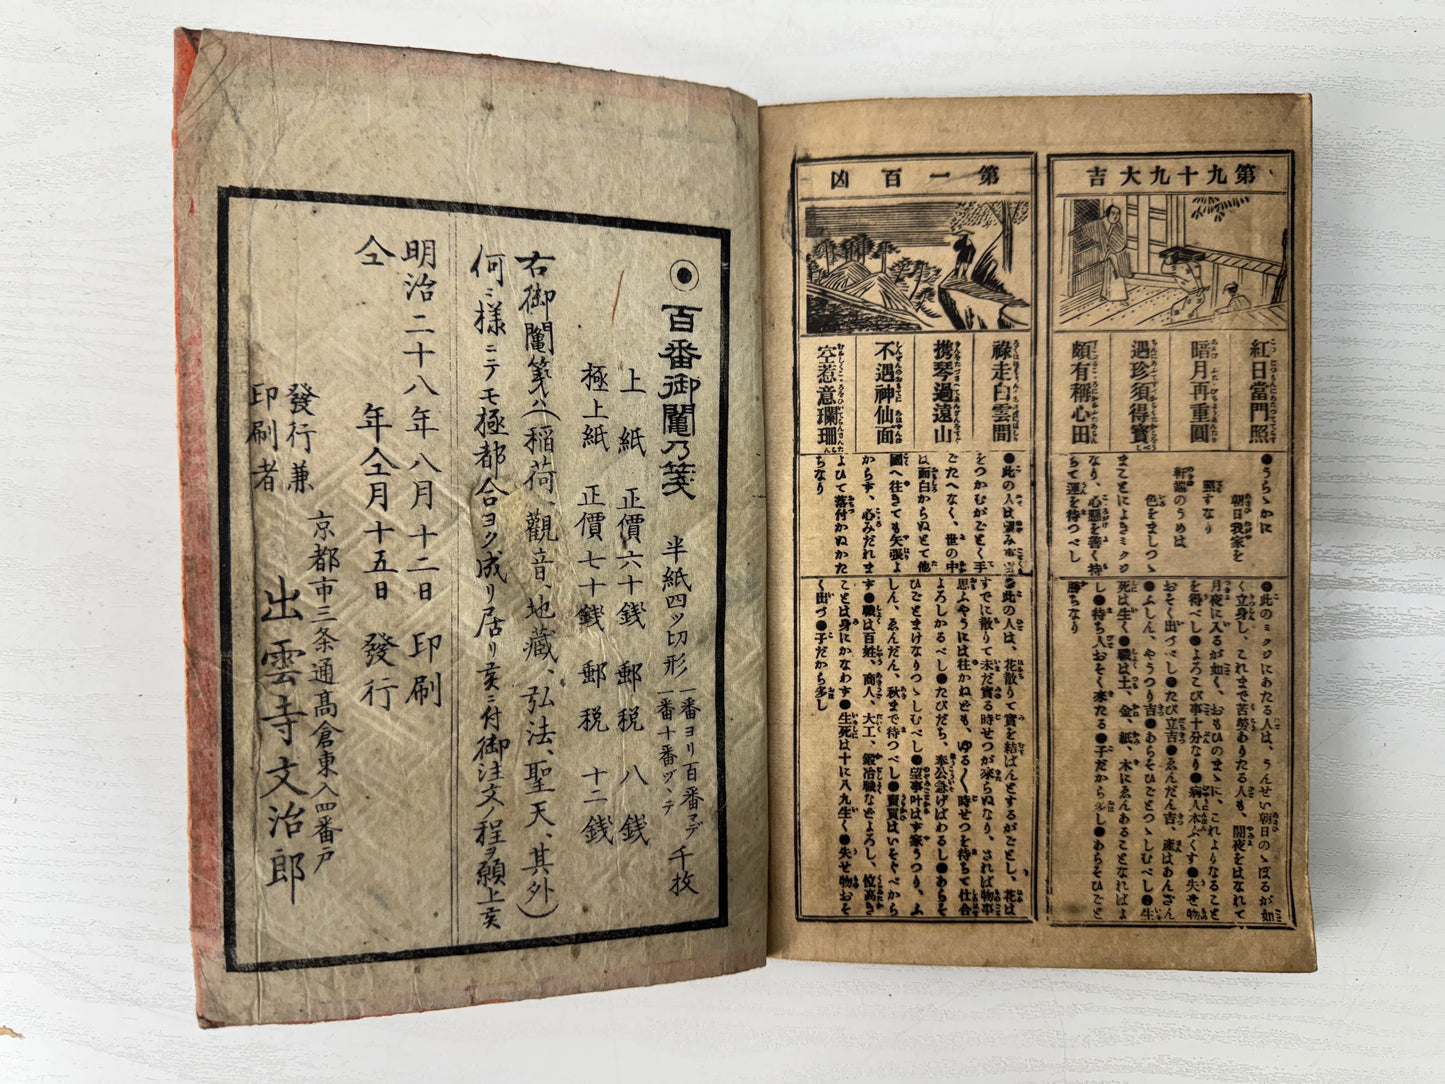 第九十九大吉
紅日當門照
暗月再重圓
遇珍須得寶
頗有稱心田
●うらゝかに
朝日我家を
照すなり
軒端のうめは
色をましつゝ
まことによきミクジ
なり、心懸を善く持
ちて運を待つべし
●此のミクジにあたる人は、うんせい朝日のゝぼるが如
く立身し、これまで苦勞ありたる人も、闇夜をはなれて
月夜に入るが如く、おもひのまゝに、これよりなること
を得べし●よろこび事十分なり●病人本ぷくす●失せ物
おそく出づべし●たび立吉●ゑんだん吉、產はあんざん
●ふしん、やうつり吉●あらそひごとつゝしむべし●生
死は生く●職は土、金、紙、木にゑんあることなればよ
し●待ち人おそく來たる●子だから多し●あらそひごと
勝ちなり
第一百凶
祿走白雲間
携琴過遠山
不遇神仙面
空惹意瓓珊
●此の人は望み事雲
をつかむがごとく手
ごたへなく、世の中
は面白からぬとて他
國へ往きても矢張よ
からず、心みだれま
よひて落付かぬかた
ちなり
●此の人は、花散りて實を結ばんとするがごとし、花は
すでに散りて未だ實る時せつが來らぬなり、されば物事
思ふやうには往かねども、ゆる〱時せつを待ちて仕合
よろしかるべし●たびだち、奉公急げばわるし●あらそ
ひごとまけなりつゝしむべし●望事叶はす家うつり、ふ
しん、ゑんだん、秋まで待つべし●賣買はいそぐべから
す●職は百姓、商人、大工、鍛冶職などよろし、位高き
ことは身にかなわす●生死は十に八九生く●失せ物おそ
く出づ●子だから多し
百番御鬮乃箋
半紙四ツ切形
一番ヨリ百番マデ
一番十番ヅヽテ
千枚
上紙 正價六十錢 郵税 八錢
極上紙 正價七十錢 郵税 十二錢
右御鬮箋ハ(稻荷、觀音、地藏、弘法、聖天、其外)
何ミ様ニテモ極都合ヨク成リ居リ亥ニ付御注文ノ程ヲ願上亥
明治二十八年八月十二日 印刷
仝 年仝月十五日 發行
發行兼
印刷者
京都市三条通髙倉東入四番戸
出雲寺文治郎